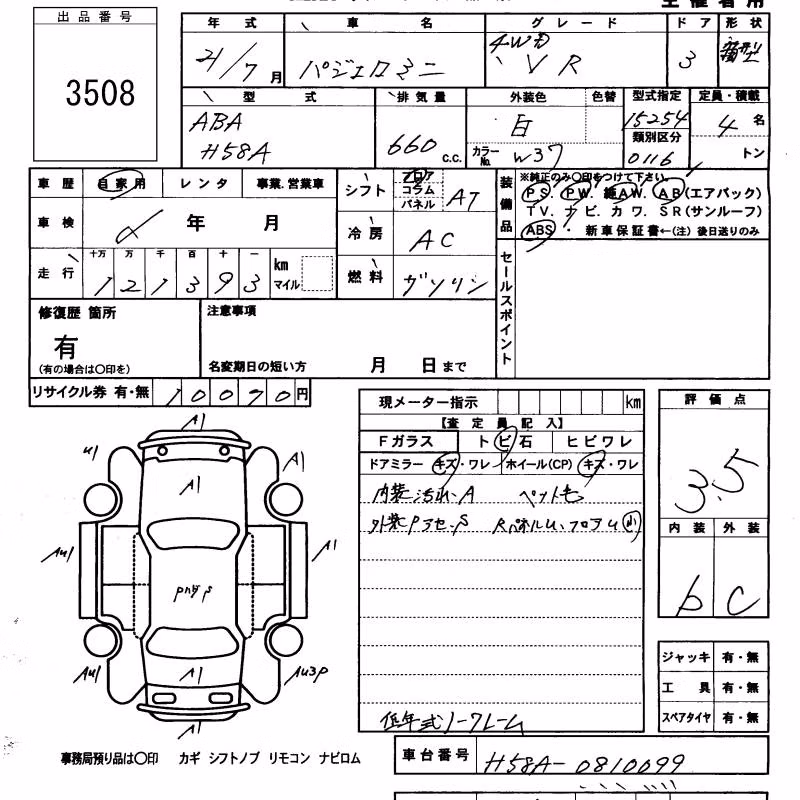 出品番号
3508
年式 車名 グレード ドア 形状
21/7月 パジェロミニ 4WD VR 3 箱型
型式 排気量 外装色 色替 型式指定 定員・積載
ABA 660 c.c. 白 15254 4名
H58A カラーNo. W37 類別区分 0116 トン
車歴 自家用 レンタ 事業.営業車
シフト フロア コラム パネル AT
装備品 ※純正のみ〇印をつけて下さい。
PS. PW. 純AW. AB(エアバック)
TV. ナビ. カワ. SR(サンルーフ)
ABS ・ 新車保証書←(注) 後日送りのみ
車検 年 月
冷房 AC
走行 十万 万 千 百 十 一 km マイル
121393
燃料 ガソリン
セールスポイント
修復歴 箇所
有
(有の場合は〇印を)
注意事項
名変期日の短い方 月 日まで
リサイクル券 有・無 10070円
現メーター指示 km
【査定員記入】
Fガラス トビ石 ヒビワレ
ドアミラー キズ・ワレ ホイール(CP) キズ・ワレ
内装汚れ.A ペット毛
外装Pアセ.S RパネルU.フロアU小
低年式1-フレーム
評価点
3.5
内装 外装
b C
ジャッキ 有・無
工具 有・無
スペアタイヤ 有・無
A1
U1
A1
A1
AU1
A1
AU1
A1
AU3P
A1
事務局預り品は〇印 カギ シフトノブ リモコン ナビロム
車台番号 H58A-0810099